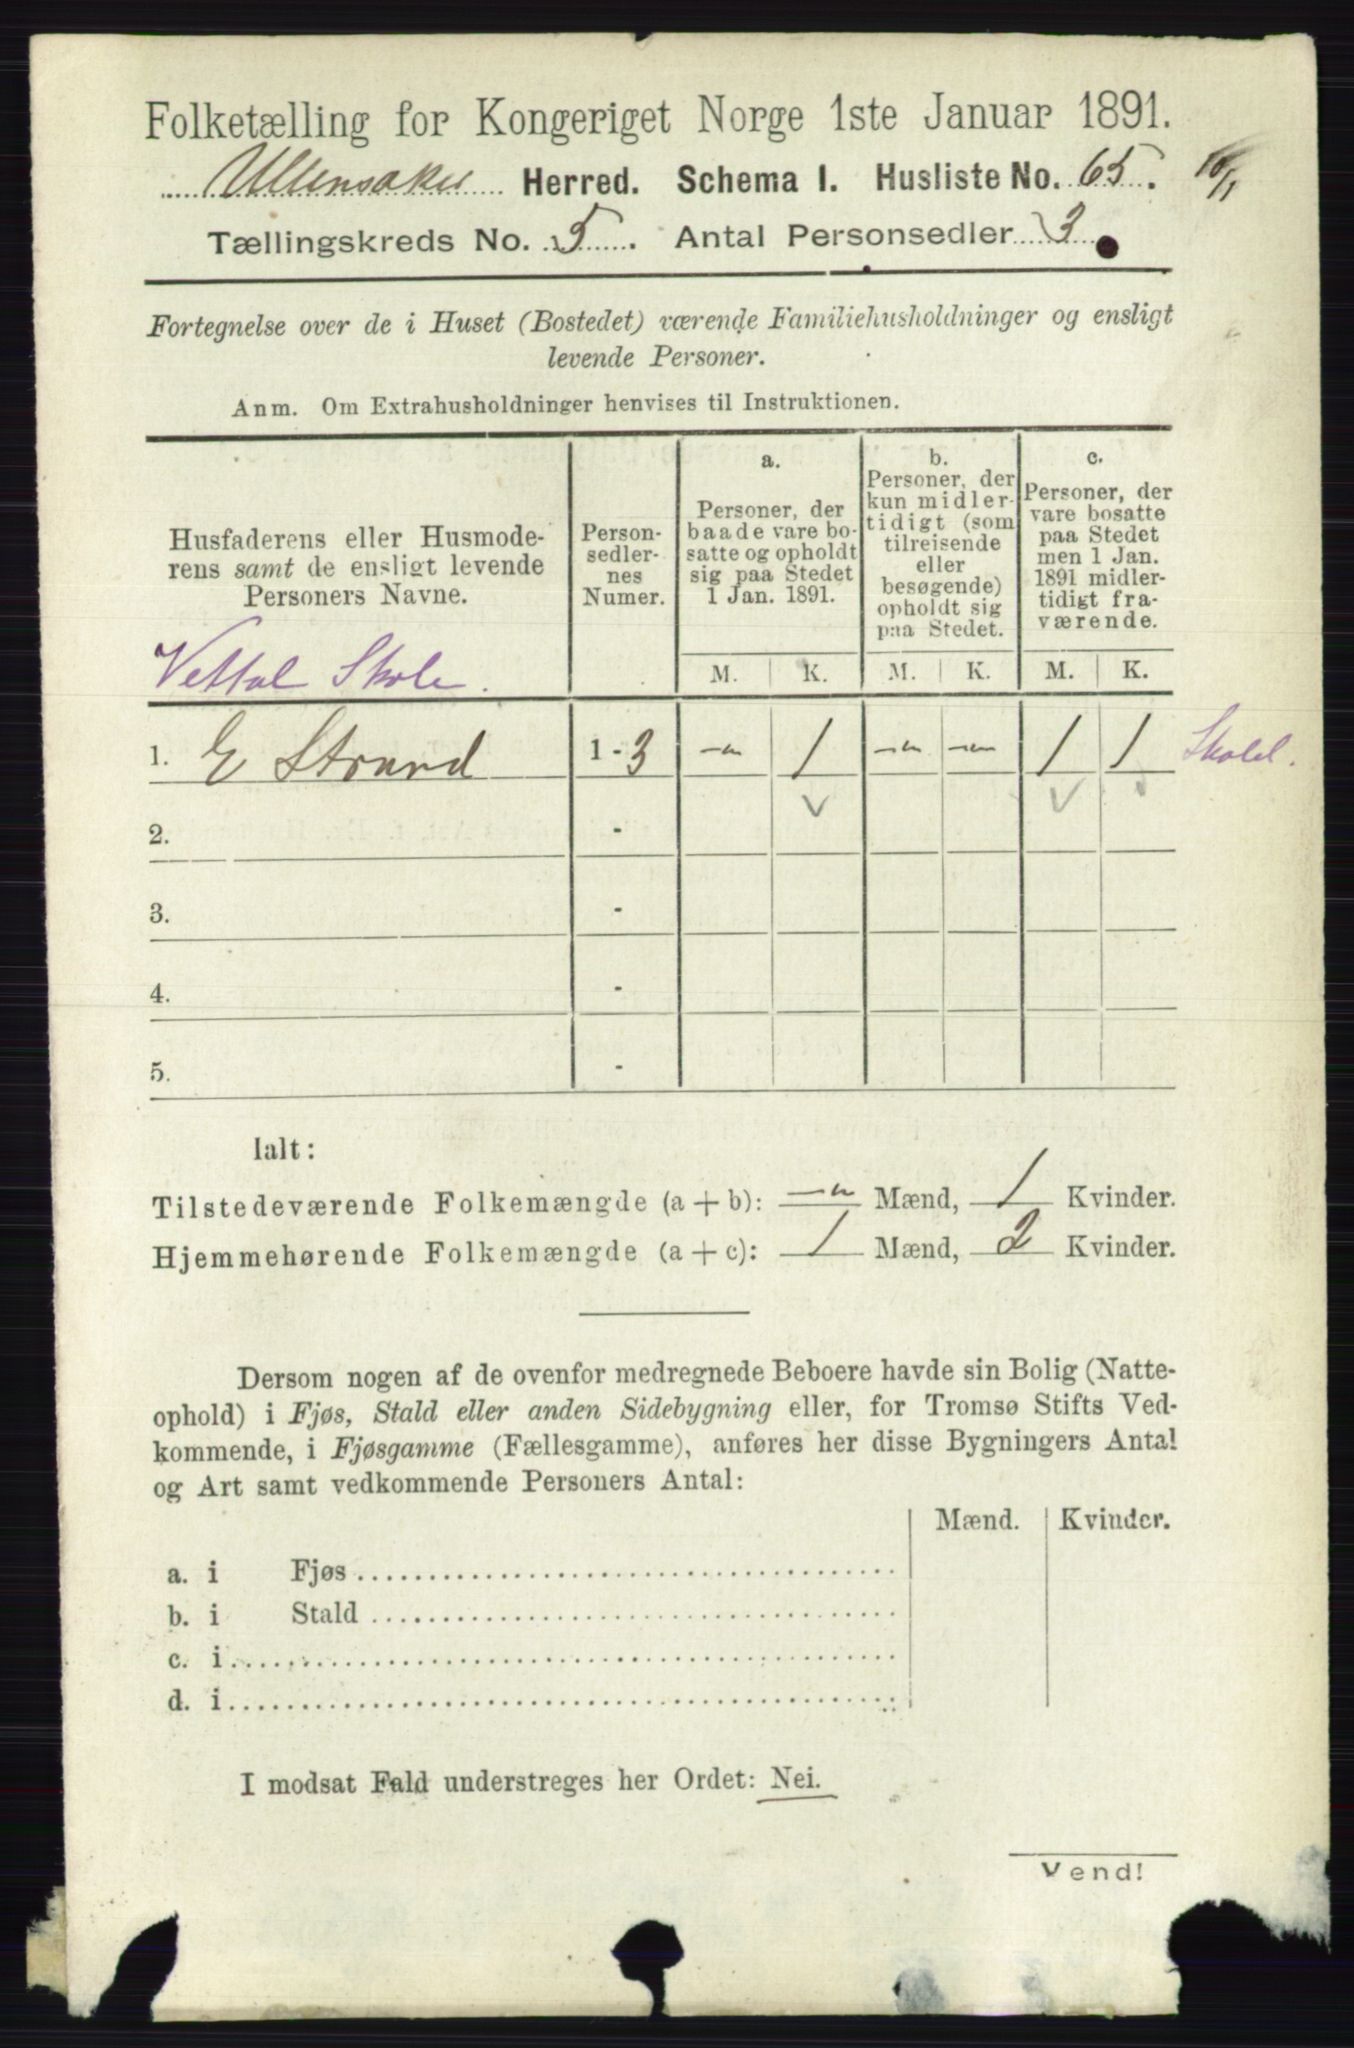 Folketælling for Kongeriget Norge 1ste Januar 1891.
Ullensaker Herred. Schema I. Husliste No. 65. 10/1
Tællingskreds No. 5. Antal Personsedler 3
Fortegnelse over de i Huset (Bostedet) værende Familiehusholdninger og ensligt
levende Personer.
Anm. Om Extrahusholdninger henvises til Instruktionen.
Husfaderens eller Husmode-
rens samt de ensligt levende
Personers Navne.
Person-
sedler-
nes
Numer.
a.
Personer, der
baade vare bo-
satte og opholdt
sig paa Stedet
1 Jan. 1891.
b.
Personer, der
kun midler-
tidigt (som
tilreisende
eller
besøgende)
opholdt sig
paa Stedet.
c.
Personer, der
vare bosatte
paa Stedet
men 1 Jan.
1891 midler-
tidigt fra-
værende.
Vettal Skole.
M. K. M. K. M. K.
1. E Strand 1 - 3 - 1 - - 1 1
2. -
3. -
4. -
5. -
Ialt:
Tilstedeværende Folkemængde (a + b): - Mænd, 1 Kvinder.
Hjemmehørende Folkemængde (a + c): 1 Mænd, 2 Kvinder.
Dersom nogen af de ovenfor medregnede Beboere havde sin Bolig (Natte-
ophold) i Fjøs, Stald eller anden Sidebygning eller, for Tromsø Stifts Ved-
kommende, i Fjøsgamme (Fællesgamme), anføres her disse Bygningers Antal
og Art samt vedkommende Personers Antal:
Mænd. Kvinder.
a. i Fjøs
b. i Stald
c. i
d. i
I modsat Fald understreges her Ordet: Nei.
Vend!